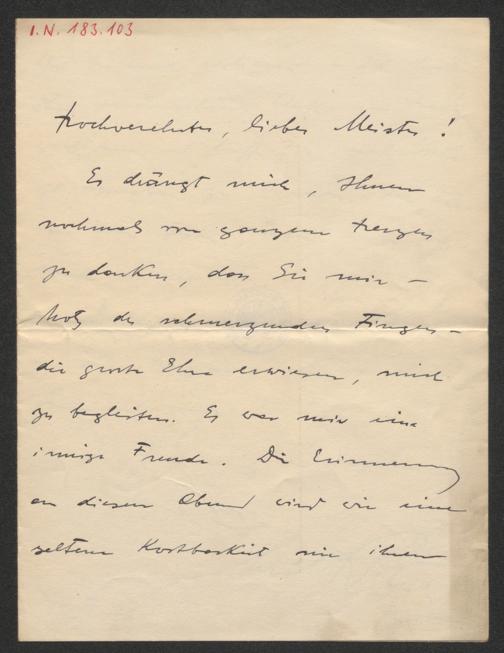 I.N. 183.103
Hochverehrter, lieber Meister!
Es drängt mich, Ihnen
nochmals von ganzem Herzen
zu danken, dass Sie mir –
trotz des schmerzenden Fingers –
die grosse Ehre erwiesen, mich
zu begleiten. Es war mir eine
innige Freude. Die Erinnerung
an diesen Abend wird wie eine
seltene Kostbarkeit nie ihren